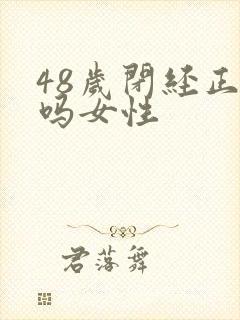 48歲閉經正
吗女性
君落舞